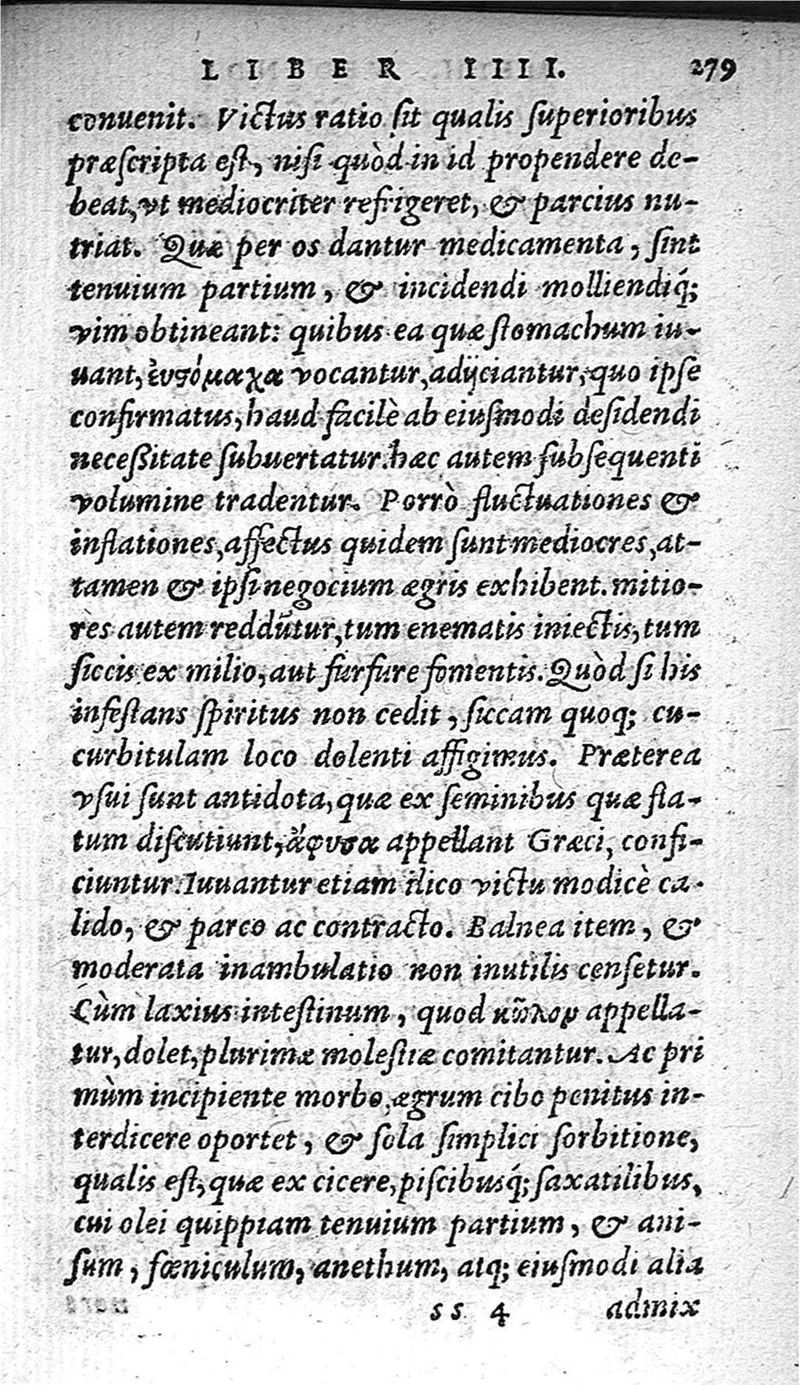 LIBER IIII. 279
conuenit. Victus ratio sit qualis superioribus
præscripta est, nisi quòd in id propendere de-
beat, vt mediocriter refrigeret, & parcius nu-
triat. Quæ per os dantur medicamenta, sint
tenuium partium, & incidendi molliendiq́;
vim obtineant: quibus ea quæ stomachum iu-
uant, ἐυστόμαχα vocantur, adijciantur, quo ipse
confirmatus, haud facilè ab eiusmodi desidendi
necessitate subuertatur. hæc autem subsequenti
volumine tradentur. Porrò fluctuationes &
inflationes, affectus quidem sunt mediocres, at-
tamen & ipsi negocium ægris exhibent. mitio-
res autem reddūtur, tum enematis iniectis, tum
siccis ex milio, aut furfure fomentis. Quòd si his
infestans spiritus non cedit, siccam quoq; cu-
curbitulam loco dolenti affigimus. Præterea
vsui sunt antidota, quæ ex seminibus quæ fla-
tum discutiunt, ἄφυσα appellant Græci, confi-
ciuntur. Iuuantur etiam ilico victu modicè ca-
lido, & parco ac contracto. Balnea item, &
moderata inambulatio non inutilis censetur.
Cùm laxius intestinum, quod κῶλον appella-
tur, dolet, plurimæ molestiæ comitantur. Ac pri
mùm incipiente morbo, ægrum cibo penitus in-
terdicere oportet, & sola simplici sorbitione,
qualis est, quæ ex cicere, piscibusq́; saxatilibus,
cui olei quippiam tenuium partium, & ani-
sum, fœniculum, anethum, atq; eiusmodi alia
ss 4 admix